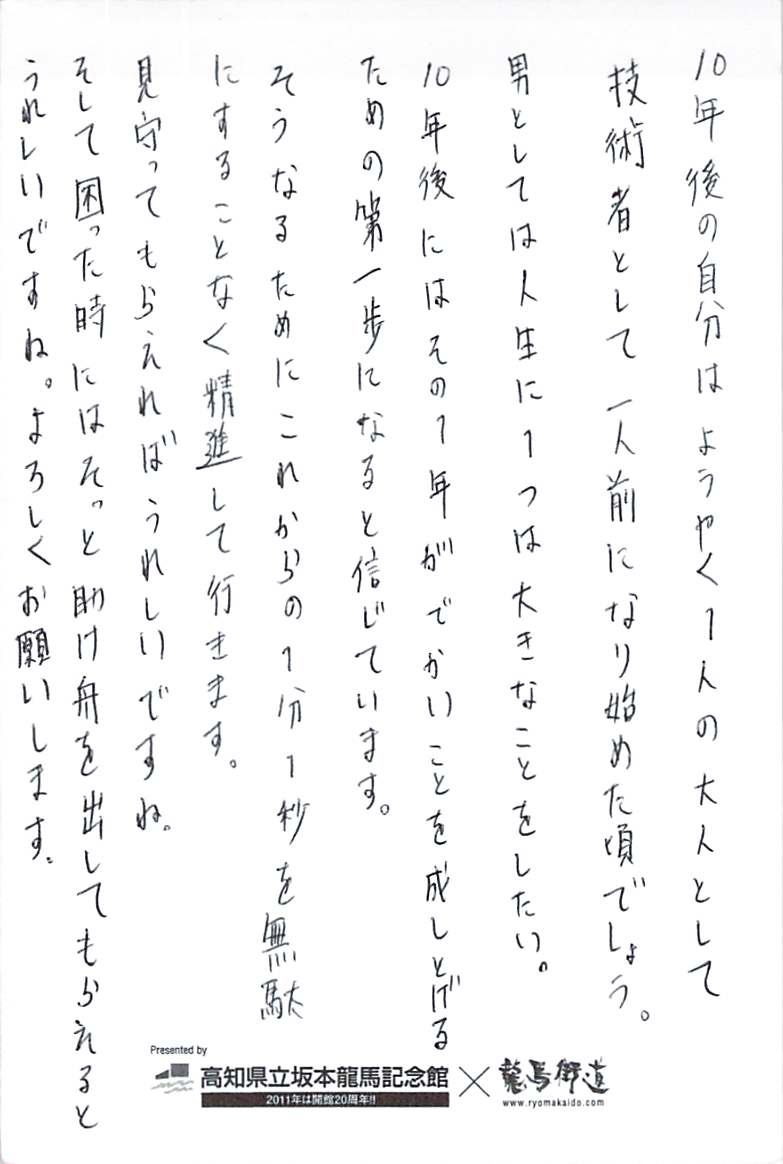 10年後の自分はようやく1人の大人として
技術者として一人前になり始めた頃でしょう。
男としては人生に1つは大きなことをしたい。
10年後にはその1年がでかいことを成しとげる
ための第一歩になると信じています。
そうなるためにこれからの1分1秒を無駄
にすることなく精進して行きます。
見守ってもらえればうれしいですね。
そして困った時にはそっと助け舟を出してもらえると
うれしいですね。よろしくお願いします。
Presented by
高知県立坂本龍馬記念館×龍馬街道
2011年は開館20周年!!
www.ryomakaido.com